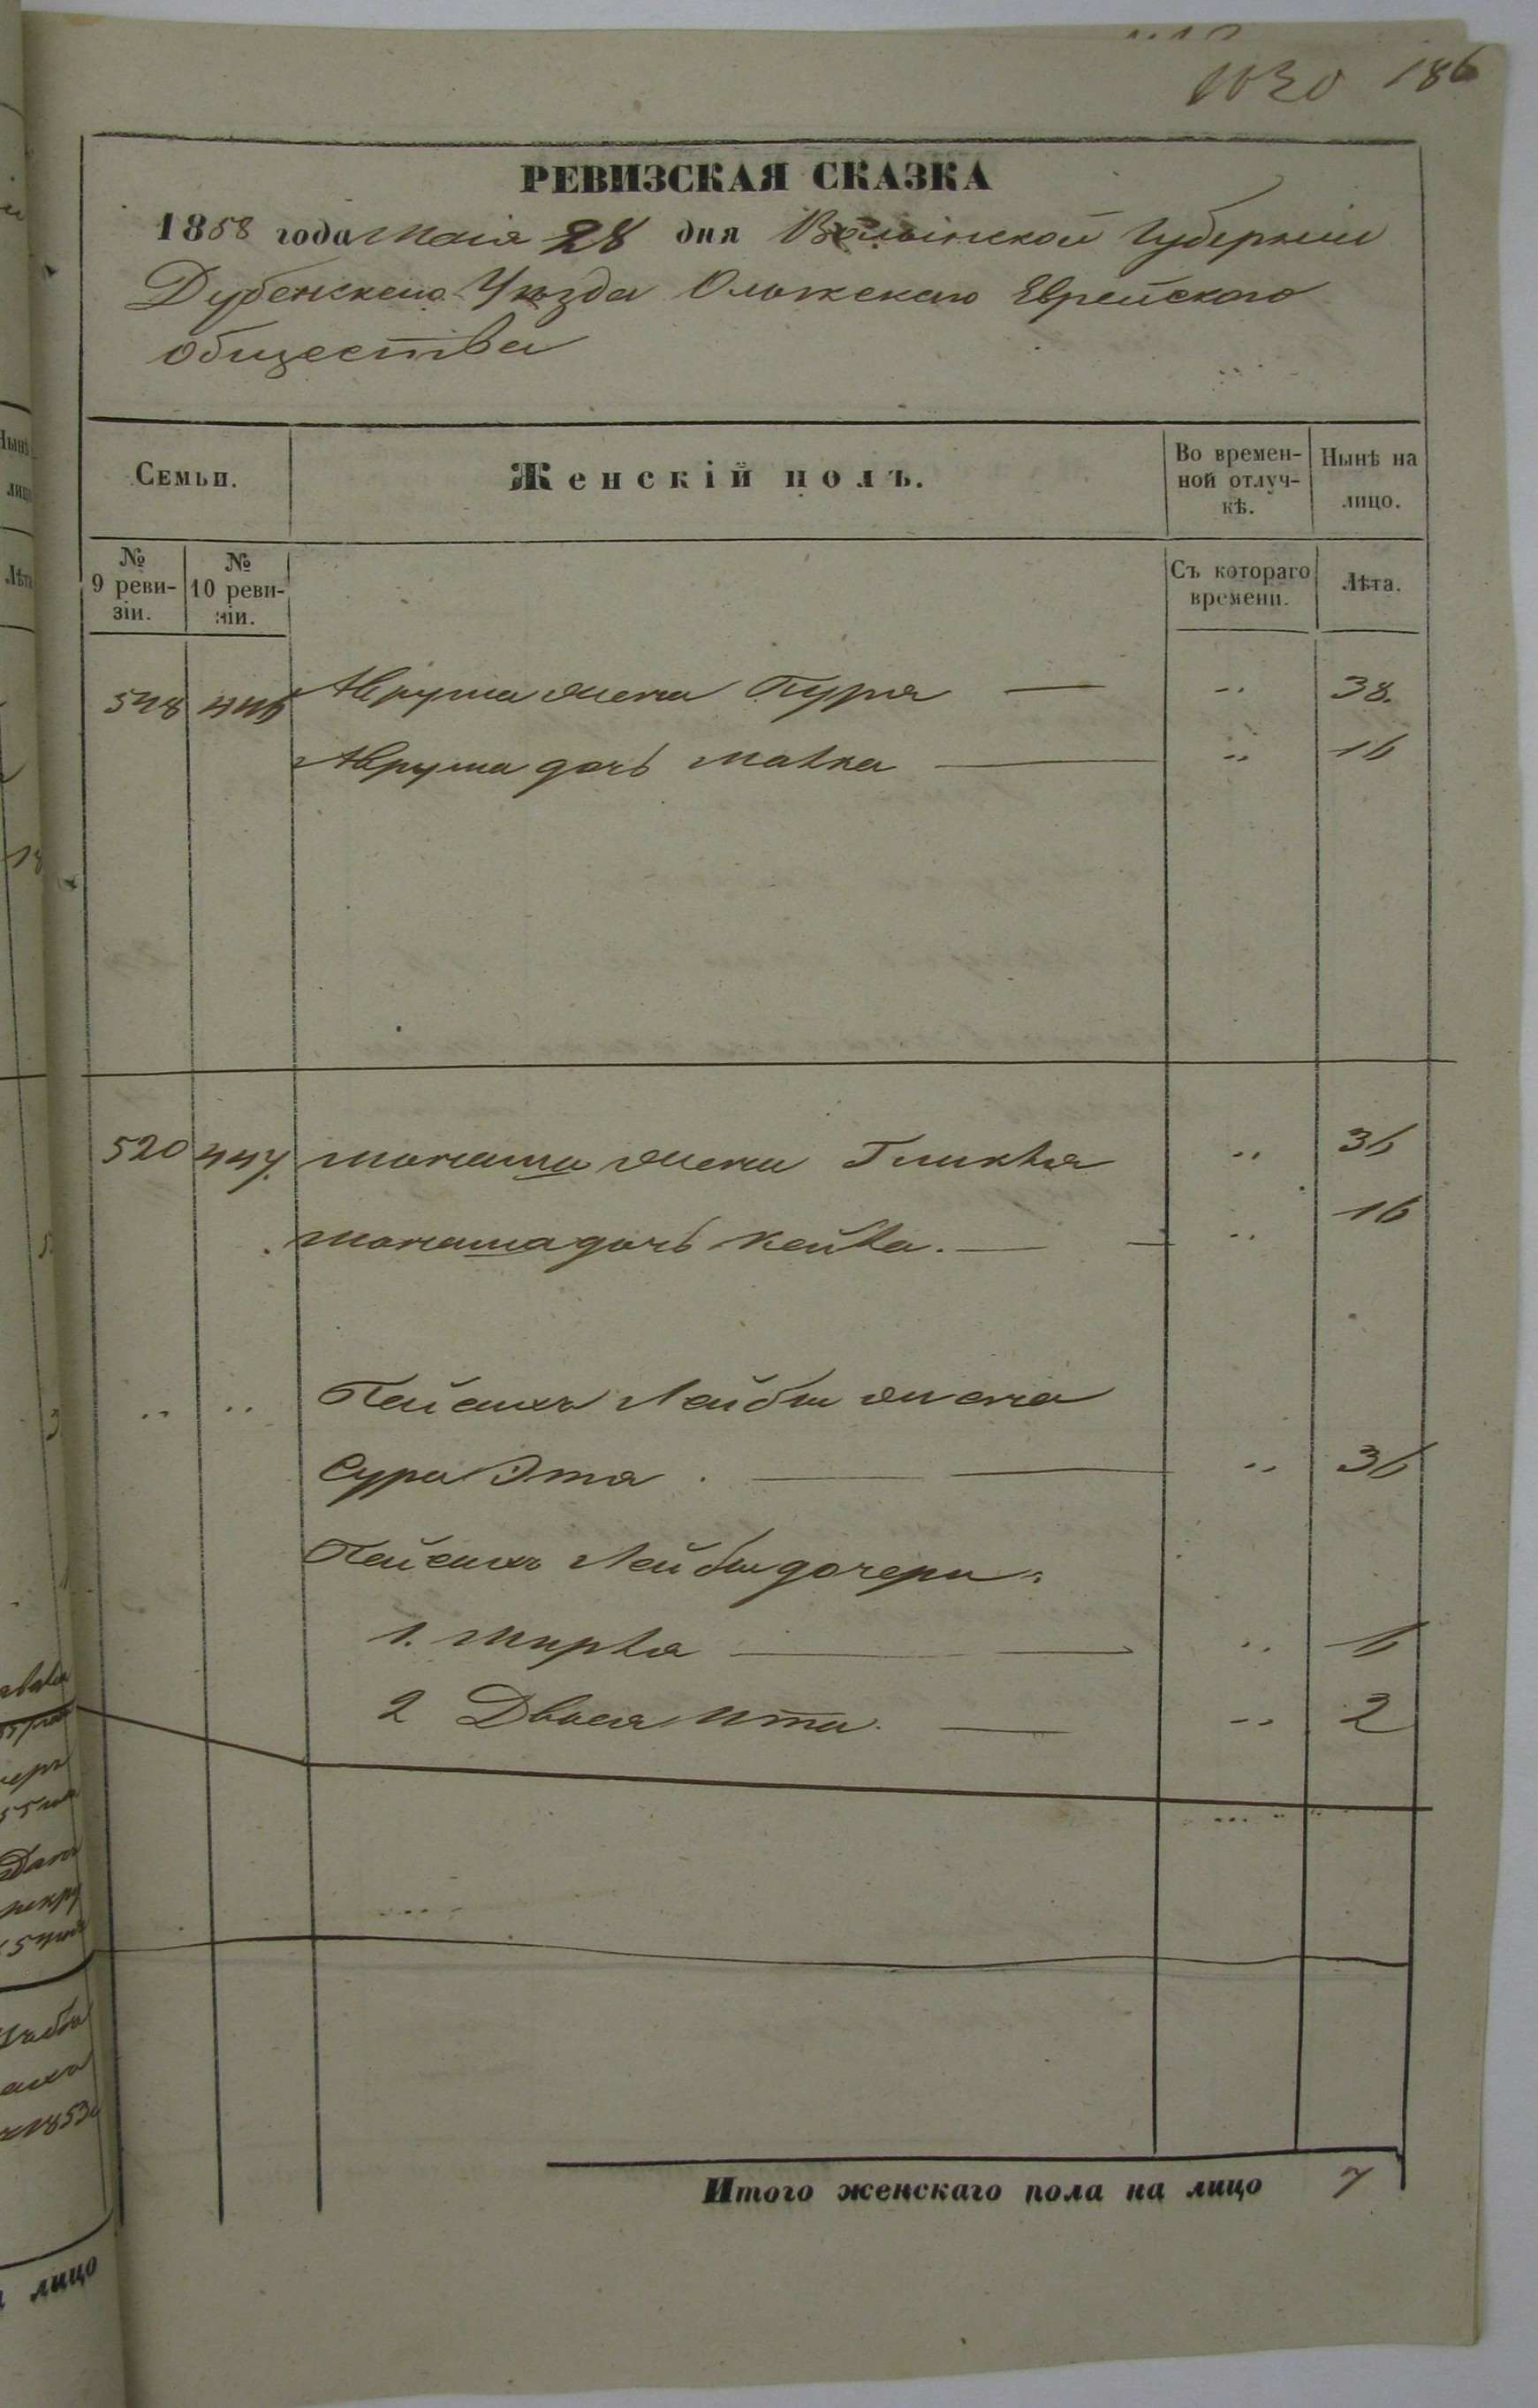 1030 186
РЕВИЗСКАЯ СКАЗКА
1858 года Маія 28 дня Волынской Губерніи
Дубенскаго Уѣзда Олыкскаго Еврейскаго
общества
Семьи.
Женскій полъ.
Во времен-
ной отлуч-
кѣ.
Нынѣ на
лицо.
№
9 реви-
зіи.
№
10 реви-
зіи.
Съ котораго
времени.
Лѣта.
518 446 Аврума жена Пуря — „ 38.
Аврума дочь Малка — „ 16
520 447. Монаша жена Гликля „ 36
Монаша дочь Кейла. — „ 16
„ „ Пейсихъ Лейбы жена
Сура Эта . — „ 36
Пейсихъ Лейбы дочери:
1. Мирля — „ 6
2 Двося Ита. — „ 2
Итого женскаго пола на лицо 7